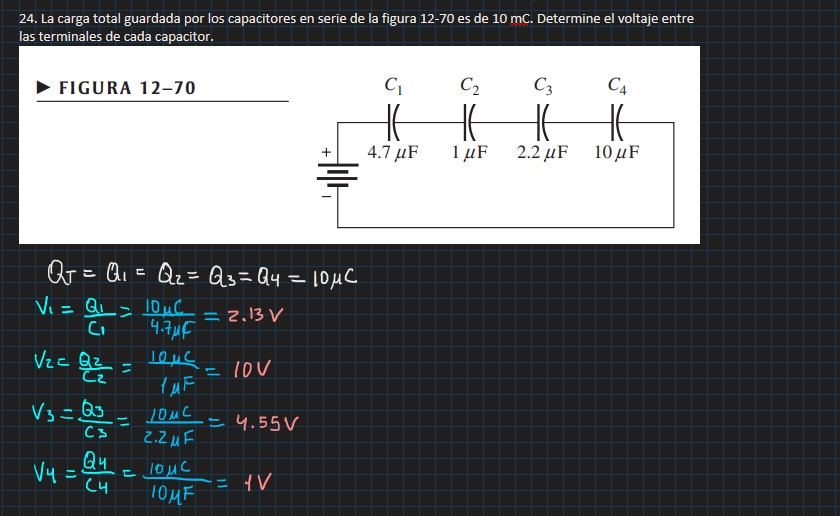 24. La carga total guardada por los capacitores en serie de la figura 12-70 es de 10 mC. Determine el voltaje entre
las terminales de cada capacitor.
► FIGURA 12–70
C₁ C₂ C₃ C₄
4.7 μF 1 μF 2.2 μF 10 μF
+
−
QT = Q1 = Q2 = Q3 = Q4 = 10μC
V1 = Q1/C1 = 10μC/4.7μF = 2.13V
V2 = Q2/C2 = 10μC/1μF = 10V
V3 = Q3/C3 = 10μC/2.2μF = 4.55V
V4 = Q4/C4 = 10μC/10μF = 1V